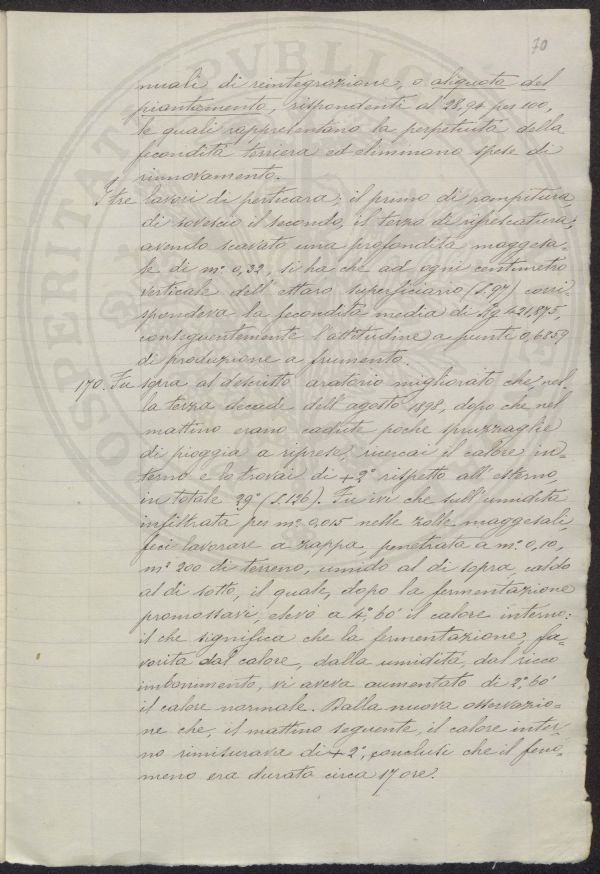 70
nuali di reintegrazione, o aliquota del
piantamento, rispondenti al 28,94 per 100,
le quali rappresentano la perpetuità della
fecondità terriera ed eliminano spese di
rinnovamento.
I tre lavori di perticara; il primo di rompitura
di sovescio il secondo, il terzo di ripescatura;
avendo scavato una profondità maggesa-
le di m.º 0,32, si ha che ad ogni centimetro
verticale dell'ettaro superficiario (§.97) corri-
spondeva la fecondità media di Kg 421,875
conseguentemente l'attitudine a punte 0,6259
di produzione a frumento.
170. Fu sopra al descritto aratorio migliorato che nel-
la terza decade dell'agosto 1898, dopo che nel
mattino erano cadute poche spruzzaglie
di pioggia a riprese, ricercai il calore in-
terno e lo trovai di +2º rispetto all'esterno,
in totale 29º (§.126). Fu ivi che sull'umidità
infiltrata per m.º 0,015 nelle zolle maggesali,
feci lavorare a zappa, penetrata a m.º 0,10,
m.º 200 di terreno, umido al di sopra caldo
al di sotto, il quale, dopo la fermentazione
promossavi, elevò a 4.º 60' il calore interno:
il che significa che la fermentazione, fa-
vorita dal calore, dalla umidità, dal ricco
imbonimento, vi aveva aumentato di 2.º 60'
il calore normale. Dalla nuova osservazio-
ne che, il mattino seguente, il calore inter-
no rimisurava di +2º, conclusi che il feno-
meno era durato circa 17 ore.
PVBLIC
OSPERITAT